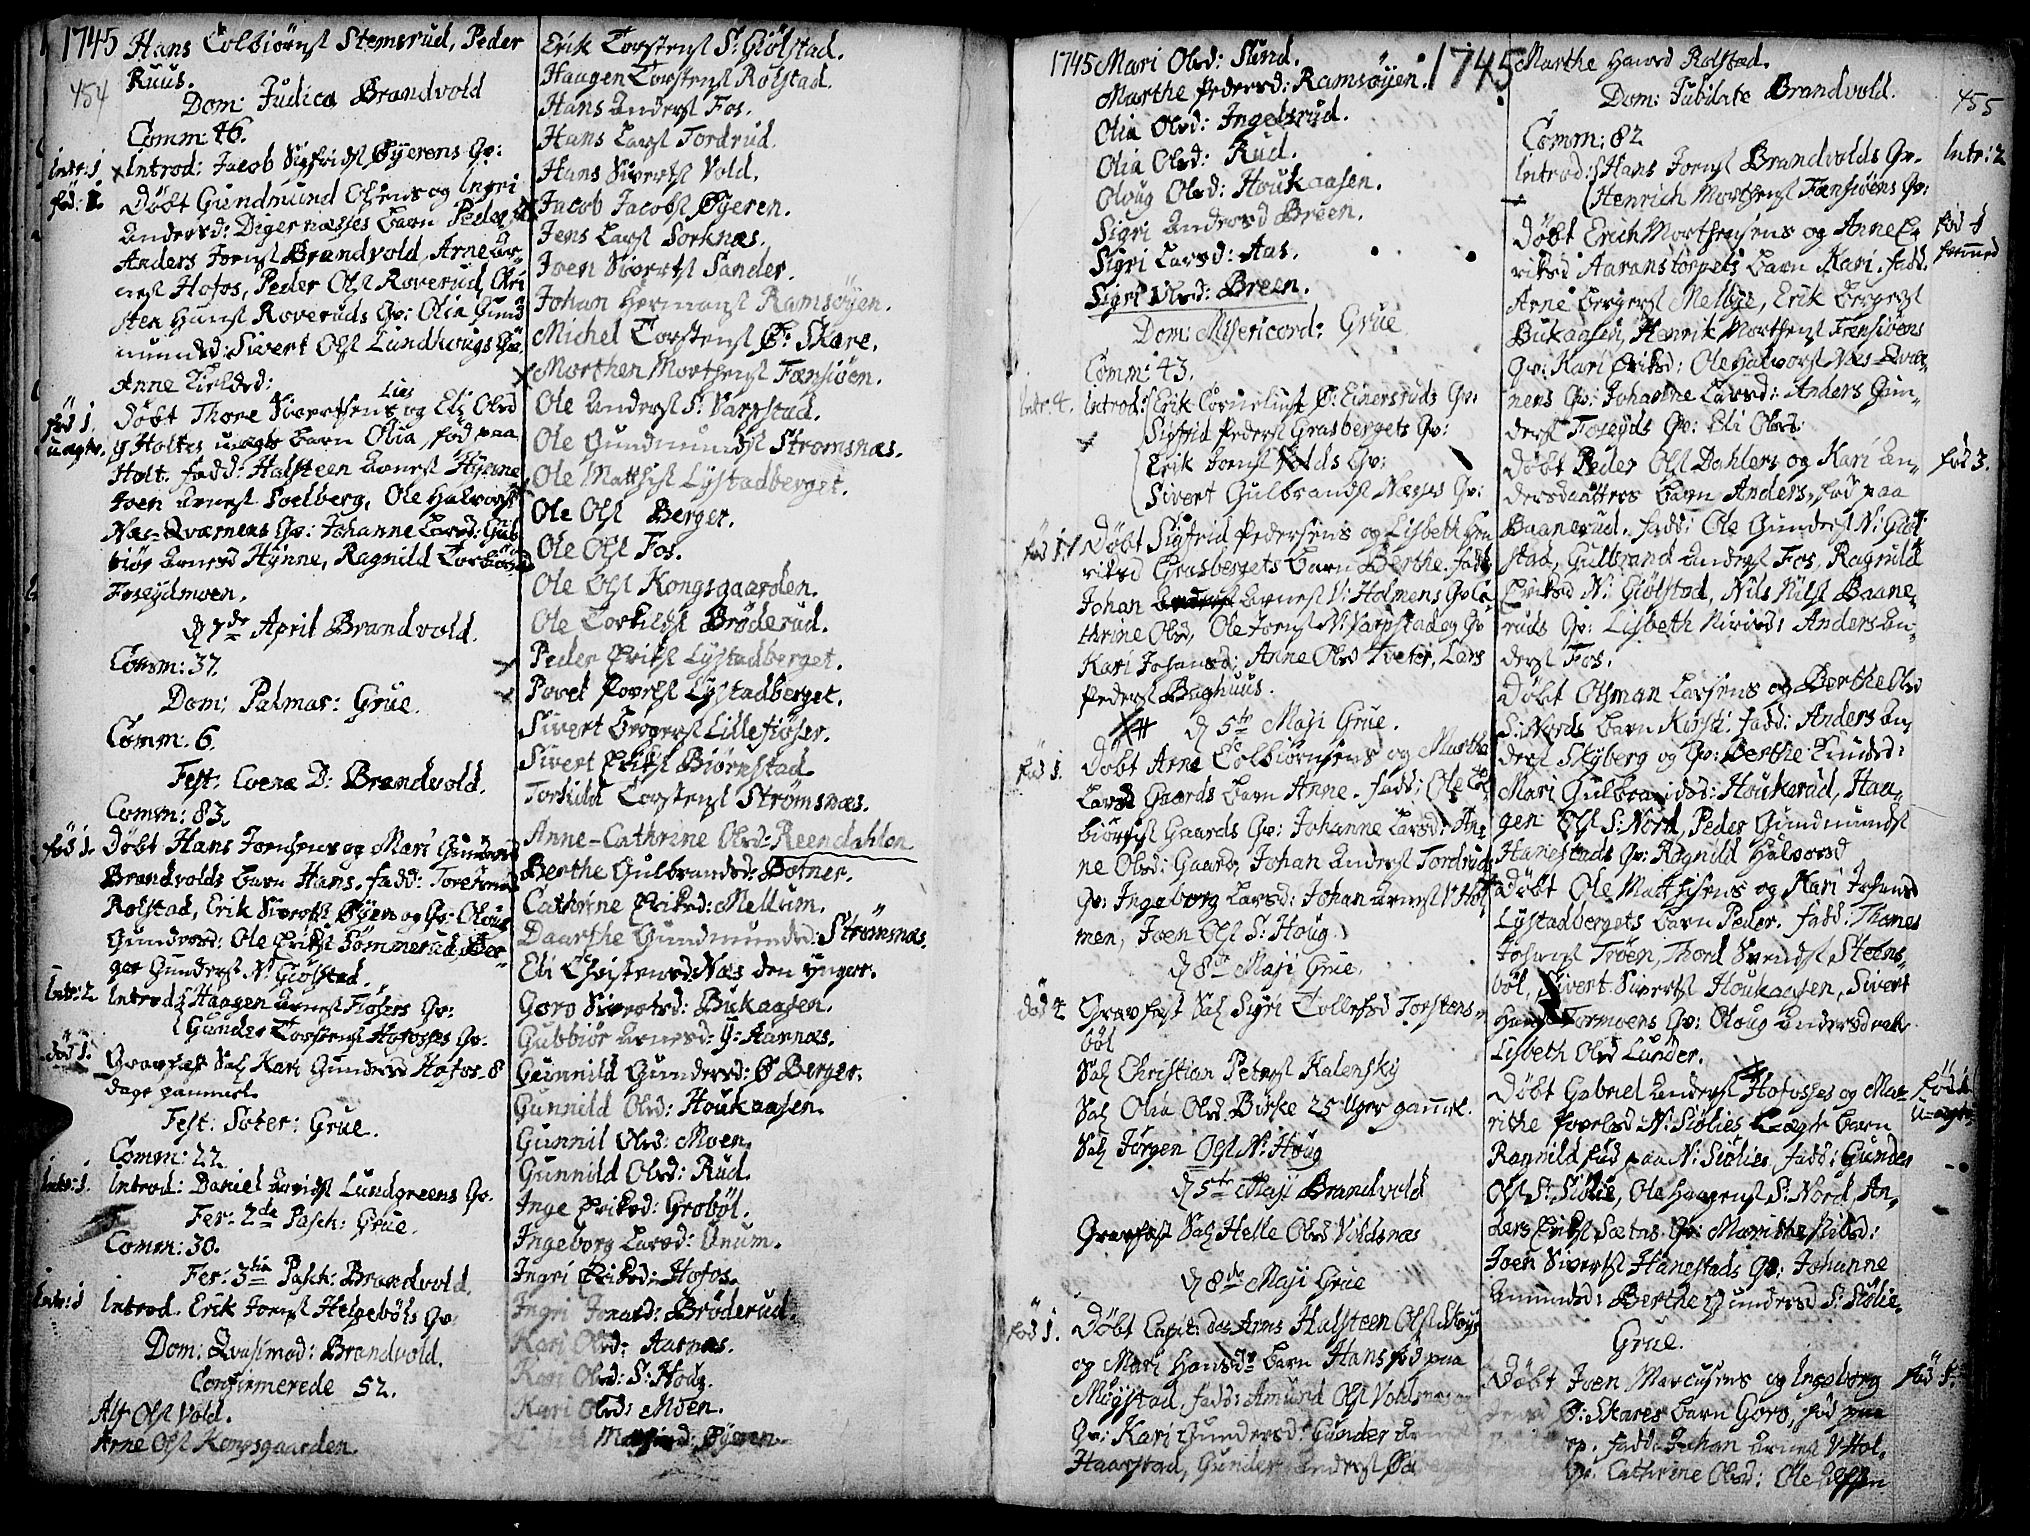 1745 Hans Colbiørnsl Stemsrud, Peder
Ruus.
454
Dom: Judica Brandvold
Comm: 46.
Intr: 1 Introd: Jacob Sigfridsl Øyerens Qv:
fød: 1. Døbt Gundmund Olsens og Ingri
Andersd: Digernæsses barn Peder,
Anders Joensl Brandvold, Arne Ar-
nesl Hofos, Peder Olsl Roverud, Chri
sten Hansl Roveruds Qv: Olia Gund
mundsd: Sivert Olsl Lundhougs Qv:
Anne Kieldsd:
Lies
fød 1. Døbt Thore Sivertsens og Eli Olsd
uægte. Holtes uægte barn Olia, fød paa
Holt. fadd: Halsteen Arnesl Hynne
Joen Arnesl Soelberg, Ole Halvorsl
Næs-Qværnens Qv: Johanne Larsd: Gub
biør Arnesd Hynne, Ragnild Torbiørsd
Foseydmoen.
d 7de April Brandvold.
Comm: 37.
Dom: Palmar: Grue.
Comm: 6.
Fest: Coena D: Brandvold.
Comm: 83.
fød 1. Døbt Hans Joensens og Mari Gundersd
Brandvolds barn Hans. fadd: Tore
Rolstad, Erik Sivertsl Øyen og Qv: Oloug
Gundersd: Ole Eriksl Sømmerud, Ber-
ger Gundersl N: Giølstad.
Intr: 2 Introd: Haagen Arnesl Fiøsers Qv:
Gunder Torstensl Hofosses Qv.
død 1. Gravfæst Sal Kari Gundersd Hofos 8
dage gammel.
Fest: Soter: Grue.
Comm: 22.
Intr: 1. Introd: Daniel Arvidsl Lundgreens Qv.
Fer: 2da Pasch: Grue.
Comm: 30.
Fer: 3tia Pasch: Brandvold.
Intr: 1 Introd. Erik Joensl Helgebøls Qv:
Dom: Qvasimod: Brandvold.
Confirmerede 52.
Alf Olsl Vold.
Arne Olsl Kongsgaarden.
Erik Torstensl S: Giølstad.
Haagen Torstensl Rolstad.
Hans Andersl Fos.
Hans Larsl Tordrud.
Hans Sivertsl Vold.
Jacob Jacobsl Øyeren.
Jens Larsl Sorknæs.
Joen Sivertsl Sander.
Johan Hermansl Ramsøyen.
Michel Torstensl Ø: Skare.
Morthen Morthensl Fænsiøen.
Ole Andersl S: Varpstad.
Ole Gundmundsl Strømsnæs.
Ole Matthisl Lystadberget.
Ole Olsl Berger.
Ole Olsl Fos.
Ole Olsl Kongsgaarden.
Ole Torkildsl Brøderud.
Peder Eriksl Lystadberget.
Povel Povelsl Lystadberget.
Sivert Bergersl Lillefiøser.
Sivert Eriksl Biørnstad.
Torkild Torstensl Strømsnæs.
Anne-Cathrine Olsd: Reendahlen
Berthe Gulbrandsd: Botner.
Cathrine Eriksd: Mellum.
Daarthe Gundmundsd: Strømsnæs.
Eli Christensd: Næs den yngre.
Goro Sivertsd: Bukaasen.
Gubbiør Arnesd: Y: Harnæs.
Gunnild Gundersd: Ø Berger.
Gunnild Olsd: Houkaasen.
Gunnil Olsd: Moen.
Gunnild Olsd: Rud.
Inge Eriksd: Grobøl.
Ingeborg Larsd: Unum.
Ingri Eriksd: Hofos.
Ingri Joensd: Brøderud.
Kari Olsd: Aarnæs.
Kari Olsd: S: Houg.
Kari Olsd: Moen.
Øyeren.
1745 Mari Olsd: Lund.
Marthe Pedersd: Ramsøyen.
Olia Olsd: Ingelsrud.
Olia Olsd: Rud.
Oloug Olsd: Houkaasen.
Sigri Andersd Breen.
Sigri Larsd: Aas.
Sigri Olsd: Breen.
Dom: Misericord: Grue
Comm: 43.
Intr. 4. Introd: Erik Corneliusl Ø: Einersruds Qv:
Sigfrid Pedersl Grasbergets Qv:
Erik Joensl Volds Qv:
Sivert Gulbrandsl Næsses Qv:
fød 1 Døbt Sigfrid Pedersens og Lisbeth Hen
riksd Grasbergets barn Berthe. fadd:
Johan Arnesl V: Holmens Qv: Ca
thrine Olsd, Ole Joensl N: Varpstad og Qv
Kari Johansd: Anne Olsd Tveter, Lars
Pedersl Baghuus.
d 5te Maji Grue.
fød 1. Døbt Arne Colbiørnsens og Marthe
Larsd Gaards barn Anne. fadd: Ole Col
biørnsl Gaards Qv: Johanne Larsd: An-
ne Olsd: Gaard, Johan Andersl Tordruds
Qv: Ingeborg Larsd: Johan Arnesl V: Hol
men, Joen Olsl S: Houg.
d 8de Maji Grue.
død 4 Gravfæst Sal Sigri Tollefsd Torstens-
bøl
Sal Christian Petersl Kalensky
Sal Olia Olsd Birke 25 Uger gammel.
Sal Jørgen Olsl N: Houg
d 5te Maji Brandvold
Gravfæst Sal Helle Olsd Voldsnæs
d 8de Maji Grue
fød 1. Døbt Capit: des Arms Halsteen Olsl Skøys
og Mari Hansdr barn Hans fød paa
Møystad. fadd: Amund Olsl Voldsnæs og
Qv: Kari Gundersd: Gunder
Haarstad, Gunder Andersl
1745 Marthe Haavrsd Rolstad.
455
Dom: Jubilate Brandvold.
Comm: 82
Intr: 2 Introd: Hans Joensl Brandvolds Qv.
Henrich Morthensl Fænsiøens Qv:
fød 1 Døbt Erich Morthensens og Anne E-
riksd Aaranstorpets barn Kari. fadd.
Arne Bergersl Melbye, Erik Bergersl
Bukaasen, Henrik Morthensl Fænsiøens
Qv: Kari Eriksd: Ole Halvorsl Næs-Qvær-
nens Qv: Johanne Larsd: Anders Gun-
dersl Foseyds Qv: Eli Olsd.
fød 3. Døbt Peder Olsl Dahlers og Kari An-
dersdatters barn Anders, fød paa
Baanerud. fadd: Ole Gundersl N: Giøl-
stad, Gulbrand Andersl Fos, Ragnild
Eriksd N: Giølstad, Nils Nilsl Baane-
ruds Qv: Lisbeth Nirisd: Anders An-
dersl Fos.
Døbt Otsman Larsens og Berthe Olsd
S: Nords barn Kirsti. fadd: Anders An-
dersl Skyberg og Qv: Berthe Knudsd:
Mari Gulbrandsd: Houkerud, Haa-
gen Olsl S: Nord, Peder Gundmundsl
Hanestads Qv: Ragnild Halvorsd
Døbt Ole Matthisens og Kari Johansd
Lystadbergets barn Peder. fadd: Thomes
Johansl Trøen, Thord Svendsl Steens-
bøl, Sivert Sivertsl Houkaasen, Sivert
Tormoens Qv: Oloug Andersdatter
Lisbeth Olsd Lunder.
fød 1 Døbt Gabriel Andersl Hofosses og Ma-
u-ægte. rithe Povelsd N: Siølies U-ægte barn
Ragnild fød paa N: Siølies, fadd: Gunder
Olsl S: Siølie, Ole Haagensl S: Nord, An-
ders Eriksl Sætnes Qv: Marithe Nilsd:
Joen Sivertsl Hanestads Qv: Johanne
Amundsd: Berthe Gundersd S: Siølie
Grue.
fød 1. Døbt Joen Marcusens og Ingeborg
Ø: Skares barn Goro, fød paa
fadd: Johan Arnesl V: Hol-
Qv: Cathrine Olsd: Ole